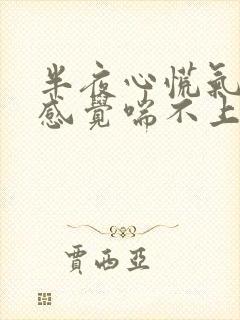 半夜心慌氣
感覺喘不上
賈西亞